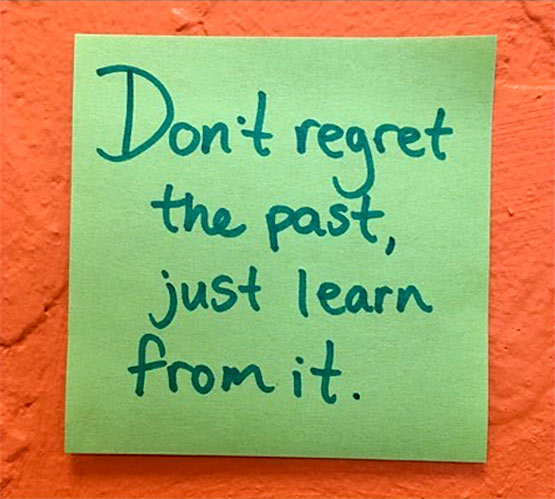 Don't regret
the past,
just learn
from it.